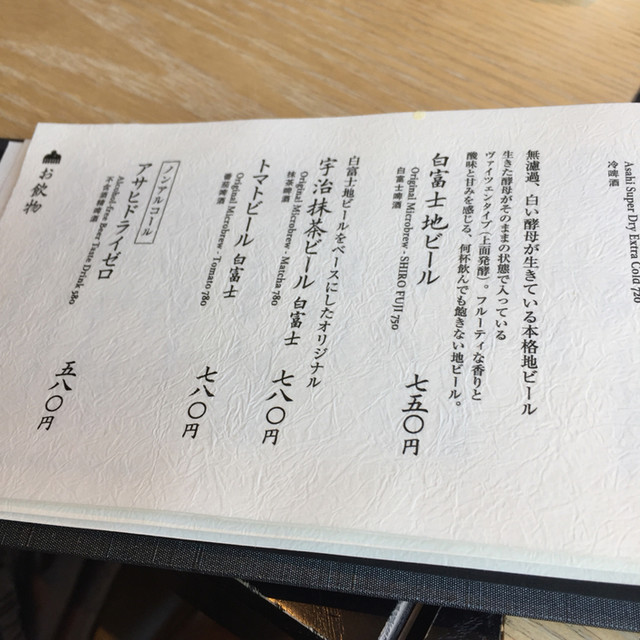 Asahi Super Dry Extra Cold 720
冷啤酒
無濾過、白い酵母が生きている本格地ビール
生きた酵母がそのままの状態で入っている
ヴァイツェンタイプ(上面発酵)。フルーティな香りと
酸味と甘みを感じる、何杯飲んでも飽きない地ビール。
白富士地ビール 七五〇円
Original Microbrew - SHIRO FUJI 750
白富士啤酒
白富士地ビールをベースにしたオリジナル
宇治抹茶ビール 白富士 七八〇円
Original Microbrew - Matcha 780
抹茶啤酒
トマトビール 白富士 七八〇円
Original Microbrew - Tomato 780
番茄啤酒
ノンアルコール
アサヒドライゼロ 五八〇円
Alcohol-free Beer Taste Drink 580
不含酒精啤酒
お飲物